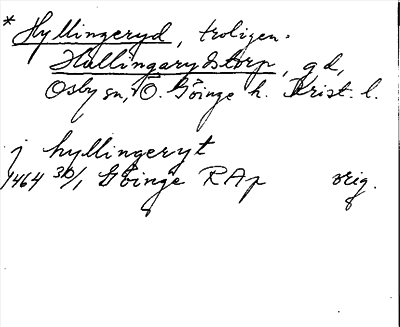 * Hyllingeryd, troligen.
Hullingarydstorp, gd,
Osby sn, Ö. Göinge h. Krist. l.
j hyllingeryt
1464 30/1 Göinge RAp orig.